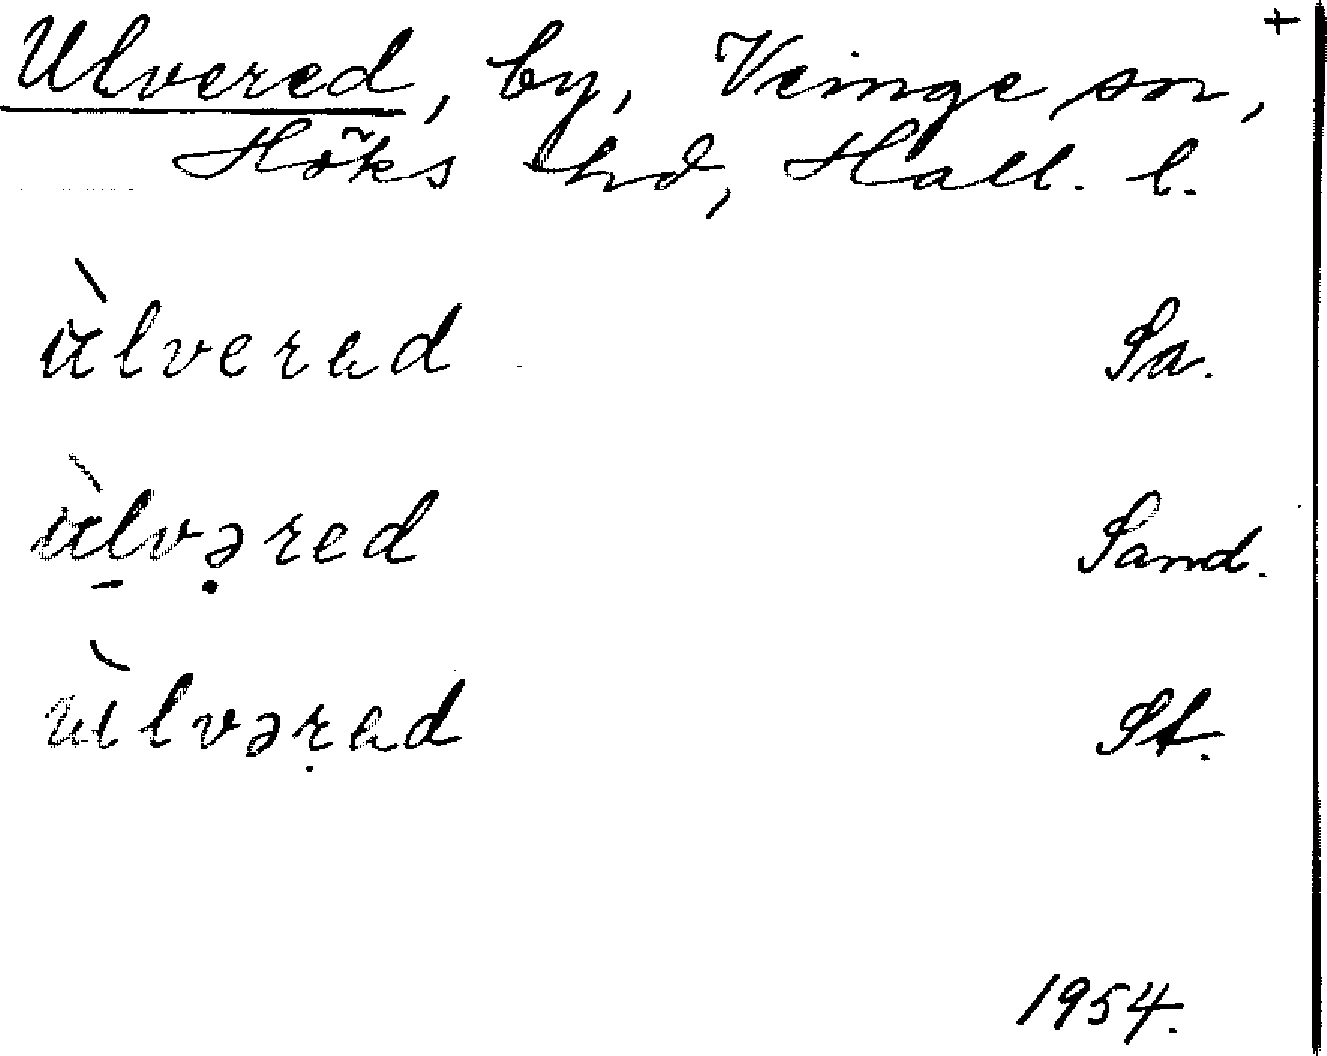 +
Ulvered, by, Veinge sn,
Höks hd, Hall. l.
ùlverad Sa.
ù̱lvə̣red Sand.
ùlvəṛad St.
1954.